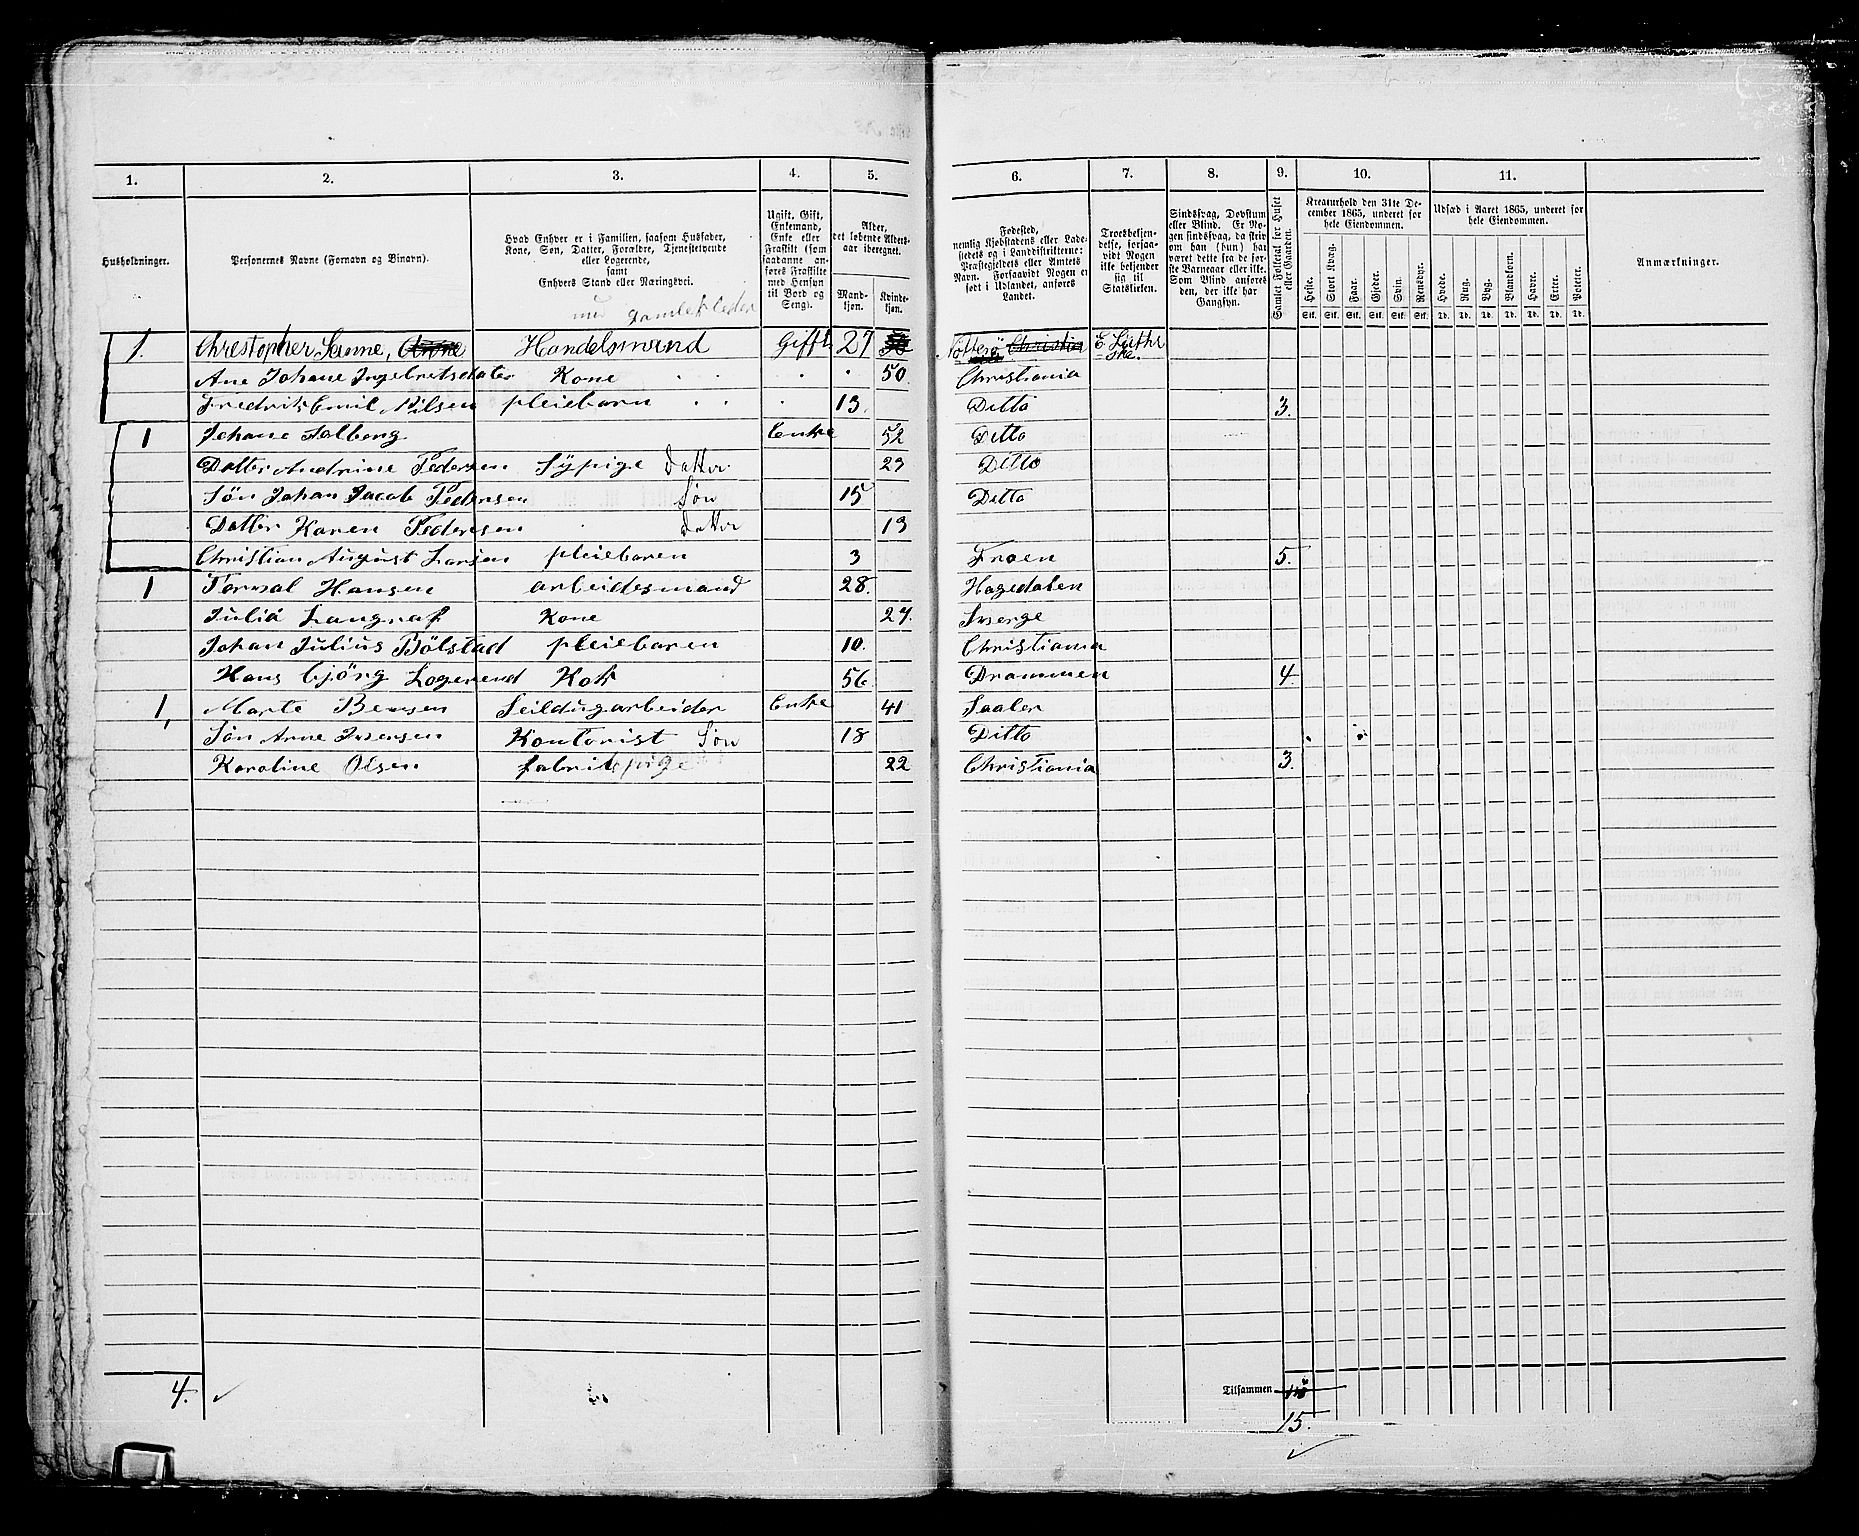 1. 2. 3. 4. 5. 6. 7. 8. 9. 10. 11.
Husholdninger.
Personernes Navne (Fornavn og Binavn).
Hvad Enhver er i Familien, saasom Husfader, Kone, Søn, Datter, Forældre, Tjenestetyende eller Logerende, samt Enhvers Stand eller Næringsvei.
Ugift, Gift, Enkemand, Enke eller Fraskilt (som saadanne anføres Fraskilte med Hensyn til Bord og Seng).
Alder, det løbende Aldersaar iberegnet.
Mandkjøn. Kvindekjøn.
Fødested, nemlig Kjøbstadens eller Ladestedets og i Landdistrikterne: Præstegjeldets eller Amtets Navn. Forsaavidt Nogen er født i Udlandet, anføres Landet.
Troesbekjendelse, forsaavidt Nogen ikke bekjender sig til Statskirken.
Sindssvag, Døvstum eller Blind. Er Nogen sindssvag, da skriv om han (hun) har været dette fra de første Barneaar eller ikke. Som Blind anføres den, der ikke har Gangsyn.
Samlet Folketal for Huset eller Gaarden.
Kreaturhold den 31te December 1865, underet for hele Eiendommen.
Heste. Stort Kvæg. Faar. Gjeder. Svin. Rensdyr.
Stk. Stk. Stk. Stk. Stk. Stk.
Udsæd i Aaret 1865, underet for hele Eiendommen.
Hvede. Rug. Byg. Blandkorn. Havre. Erter. Poteter.
Td. Td. Td. Td. Td. Td. Td.
Anmærkninger.
med gamle Kleder
1. Christopher Senne, Anne Handelsmand Gift 27 Nötterö Christia E Luthrske.
Ane Johane Ingebretsdater Kone 50. Christiania
Fredrik Emil Nilsen pleiebarn 13. Ditto 3.
1 Johane Solberg Enke 52 Ditto
Datter Andrine Pedersen Sypige Datter 23 Ditto
Søn Johan Jacob Pedersen Søn 15 Ditto
Datter Karen Pedersen Datter 13
Christian August Larsen pleiebaren 3 Froen 5.
1 Hansen arbeidesmand 28. Hagedalen
Julia Kone 27. Sverge
Johan Julius Bölstad pleiebaren 10. Christiania
Hans Logerend Kok 56. Drammen 4.
1, Marte Seildugarbeider Enke 41 Saaler
Søn Arne Kontorist Søn 18 Ditto
Karoline Olsen fabrikspige 22 Christiania 3.
4. ✓
Tilsammen
15. ✓